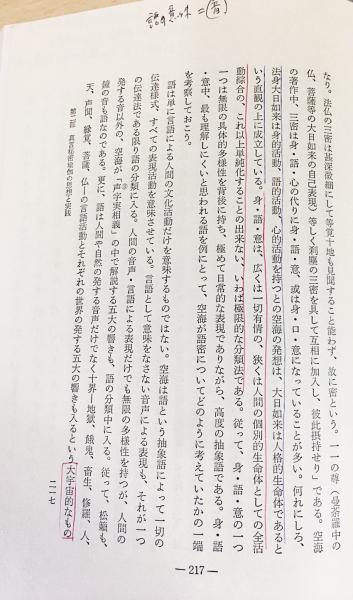 語の意味=(音)
なり。法仏の三密は甚深微細にして等覚十地も見聞すること能わず、故に密という。一一の尊（曼荼羅中の
仏、菩薩等の大日如来の自己現実、等しく刹塵の三密を具して互相に加入し、彼此摂持せり」である。空海
の著作中、三密は身・語・心の代りに身・語・意、或は身・口・意になっていることが多い。何れにしろ、
法身大日如来は身的活動、語的活動、心的活動を持つとの空海の発想は、大日如来は人格的生命体であると
いう直観の上に成立している。身・語・意は、広くは一切有情の、狭くは人間の個別的生命体としての全活
動綜合の、これ以上単純化することの出来ない、いわば極限的な分類法である。従って、身・語・意の一つ
一つは無限の具体的多様性を背後に持ち、極めて日常的な表現でありながら、高度の抽象語である。身・語
・意中、最も理解しにくいと思われる語を例にとって、空海が語密についてどのように考えていたかの一端
を考察しておこう。
語は単に言語による人間の文化活動だけを意味するものではない。空海は語という抽象語によって一切の
伝達様式、すべての表現活動を意味させている。言語として意味をなさない音声による表現も、それが一つ
の伝達法である限り語の分類に入る。人間の音声・言語による表現だけでも無限の多様性を持つが、人間の
発する音以外の、空海が「声字実相義」の中で解説する五大の響きも、語の分類中に入る。従って、松籟も、
鐘の音も語なのである。更に、語は人間や自然の発する音声だけでなく十界―地獄、餓鬼、畜生、修羅、人、
天、声聞、縁覚、菩薩、仏―の言語活動とそれぞれの世界の発する五大の響きも入るという大宇宙的なもの
第二部 真言秘密瑜伽の思想と実践
二一七
— 217 —